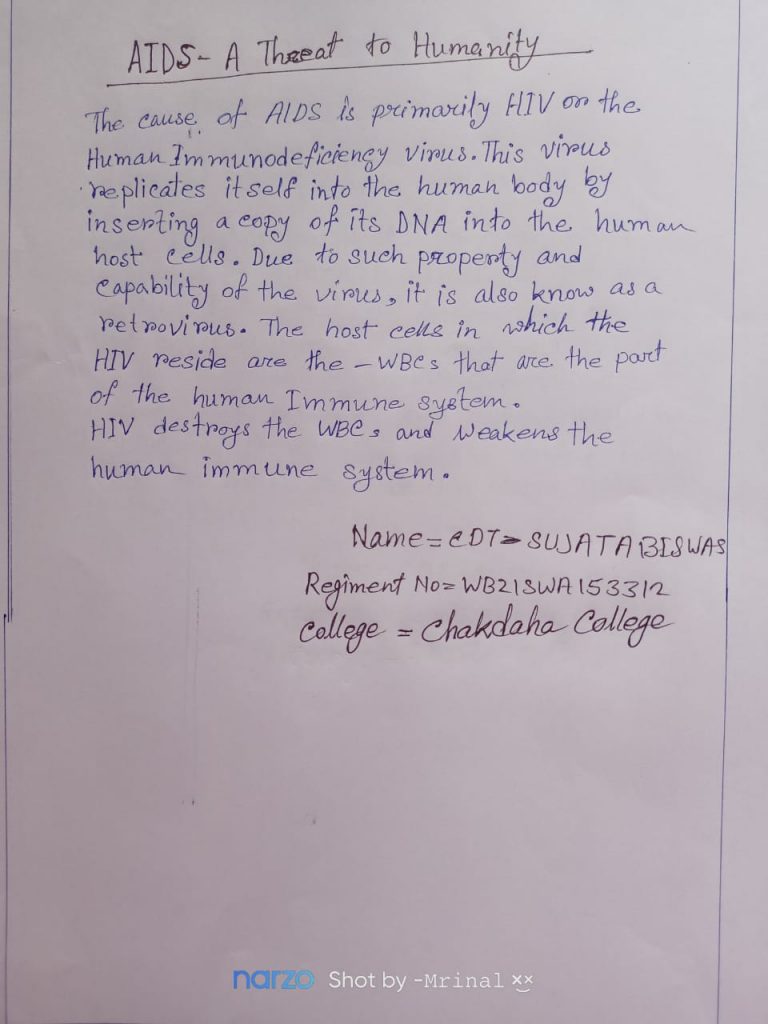 AIDS- A Threat to Humanity
The cause of AIDS is primarily HIV or the
Human Immunodeficiency virus. This virus
replicates itself into the human body by
inserting a copy of its DNA into the human
host cells. Due to such property and
capability of the virus, it is also know as a
retrovirus. The host cells in which the
HIV reside are the - WBCs that are the part
of the human Immune system.
HIV destroys the WBCs and weakens the
human immune system.
Name = CDT SUJATA BISWAS
Regiment No= WB21SWA153312
College = Chakdaha College
narzo Shot by -Mrinal ××